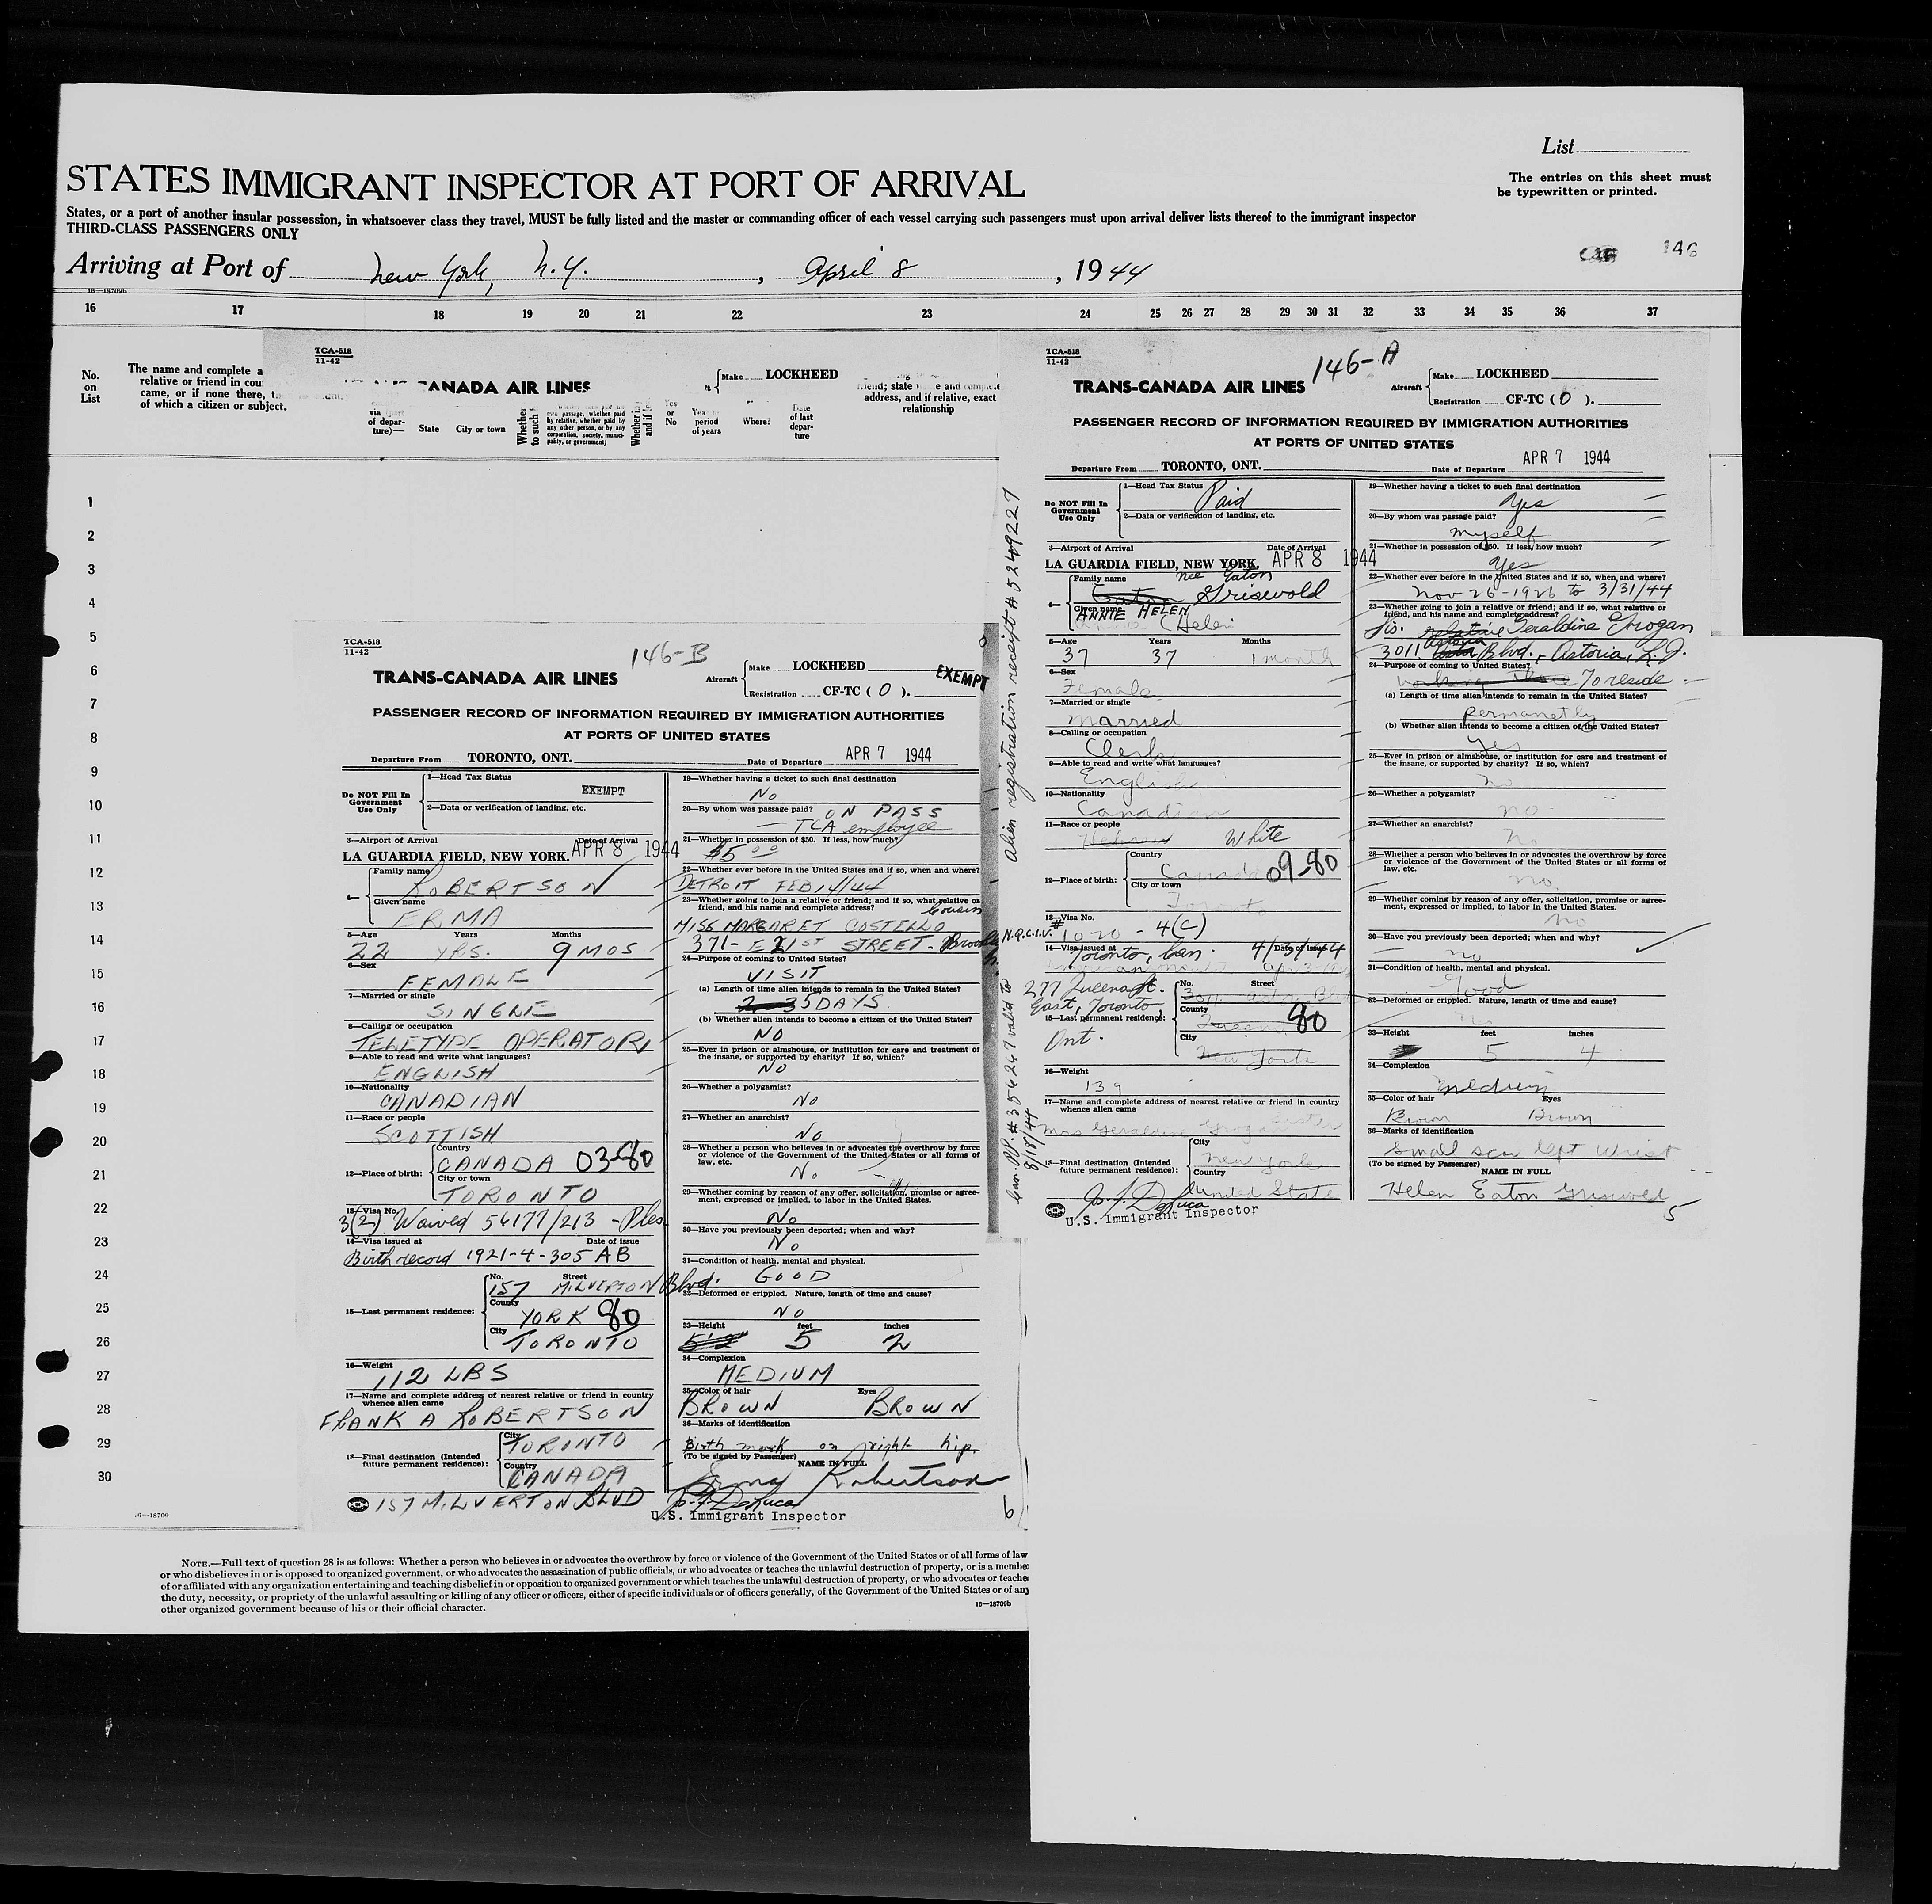 List
The entries on this sheet must
be typewritten or printed.
STATES IMMIGRANT INSPECTOR AT PORT OF ARRIVAL
States, or a port of another insular possession, in whatsoever class they travel, MUST be fully listed and the master or commanding officer of each vessel carrying such passengers must upon arrival deliver lists thereof to the immigrant inspector
THIRD-CLASS PASSENGERS ONLY
146
Arriving at Port of New York, N.Y. , April 8 , 1944
16—18709b
16 17 18 19 20 21 22 23 24 25 26 27 28 29 30 31 32 33 34 35 36 37
No.
on
List
The name and complete a
relative or friend in cou
came, or if none there,
of which a citizen or subject.
TCA-518
11-42
CANADA AIR LINES
Make LOCKHEED
address, and if relative, exact
relationship
via
of depar-
ture)—
State City or town
Whether
to such
Yes
or
No
period
of years
Where?
Date
of last
depar-
ture
1
2
3
4
5
6
7
8
9
10
11
12
13
14
15
16
17
18
19
20
21
22
23
24
25
26
27
28
29
30
TCA-518
11-42
146-B
TRANS-CANADA AIR LINES
Aircraft
Make LOCKHEED
Registration CF-TC ( O ).
EXEMPT
PASSENGER RECORD OF INFORMATION REQUIRED BY IMMIGRATION AUTHORITIES
AT PORTS OF UNITED STATES
Departure From TORONTO, ONT. Date of Departure APR 7 1944
Do NOT Fill In
Government
Use Only
1—Head Tax Status
EXEMPT
2—Data or verification of landing, etc.
3—Airport of Arrival Date of Arrival
LA GUARDIA FIELD, NEW YORK. APR 8 1944
4—
Family name
ROBERTSON
Given name
ERMA
5—Age Years Months
22 YRS. 9 MOS
6—Sex
FEMALE
7—Married or single
SINGLE
8—Calling or occupation
TELETYPE OPERATOR
9—Able to read and write what languages?
ENGLISH
10—Nationality
CANADIAN
11—Race or people
SCOTTISH
12—Place of birth:
Country
CANADA 03-80
City or town
TORONTO
13—Visa No.
3(2) Waived 56177/213 - Ples.
14—Visa issued at Date of issue
Birth record 1921-4-305 AB
15—Last permanent residence:
No. Street
157 MILVERTON Blvd.
County
YORK 80
City
TORONTO
16—Weight
112 LBS
17—Name and complete address of nearest relative or friend in country
whence alien came
FRANK A ROBERTSON
18—Final destination (Intended
future permanent residence):
City
TORONTO
Country
CANADA
157 MILVERTON BLVD
19—Whether having a ticket to such final destination
No
20—By whom was passage paid? ON PASS
— TCA employee
21—Whether in possession of $50. If less, how much?
$5 00
22—Whether ever before in the United States and if so, when and where?
DETROIT FEB 14/44
23—Whether going to join a relative or friend; and if so, what relative or
friend, and his name and complete address? Cousin
MISS MARGARET COSTELLO
371- E 21ST STREET -
24—Purpose of coming to United States?
VISIT
(a) Length of time alien intends to remain in the United States?
5 DAYS
(b) Whether alien intends to become a citizen of the United States?
NO
25—Ever in prison or almshouse, or institution for care and treatment of
the insane, or supported by charity? If so, which?
NO
26—Whether a polygamist?
NO
27—Whether an anarchist?
NO
28—Whether a person who believes in or advocates the overthrow by force
or violence of the Government of the United States or all forms of
law, etc.
No
29—Whether coming by reason of any offer, solicitation, promise or agree-
ment, expressed or implied, to labor in the United States.
No
30—Have you previously been deported; when and why?
No
31—Condition of health, mental and physical.
GOOD
32—Deformed or crippled. Nature, length of time and cause?
NO
33—Height feet inches
5 2
34—Complexion
MEDIUM
35—Color of hair Eyes
BROWN BROWN
36—Marks of identification
Birth mark on right hip.
(To be signed by Passenger) NAME IN FULL
Erma Robertson
U.S. Immigrant Inspector
6
alien registration receipt # 5249227
TCA-518
11-42
146-A
TRANS-CANADA AIR LINES
Aircraft
Make LOCKHEED
Registration CF-TC ( O ).
PASSENGER RECORD OF INFORMATION REQUIRED BY IMMIGRATION AUTHORITIES
AT PORTS OF UNITED STATES
Departure From TORONTO, ONT. Date of Departure APR 7 1944
Do NOT Fill In
Government
Use Only
1—Head Tax Status
Paid
2—Data or verification of landing, etc.
3—Airport of Arrival Date of Arrival
LA GUARDIA FIELD, NEW YORK. APR 8 1944
4—
Family name nee Eaton
Eaton Griswold
Given name
ANNIE HELEN
(Helen)
5—Age Years Months
37 37 1 month
6—Sex
Female
7—Married or single
married
8—Calling or occupation
Clerk
9—Able to read and write what languages?
English
10—Nationality
Canadian
11—Race or people
Hebrew White
12—Place of birth:
Country
Canada 09-80
City or town
Toronto
13—Visa No.
N.Q.C.I.V. # 1020 - 4(C)
14—Visa issued at Date of issue
Toronto, Can. 4/3/44
277 Queen St.
East, Toronto,
Ont.
15—Last permanent residence:
No. Street
County
Queens 80
City
New York
16—Weight
139
17—Name and complete address of nearest relative or friend in country
whence alien came
Mrs Geraldine Grogan
18—Final destination (Intended
future permanent residence):
City
New York
Country
United State
U.S. Immigrant Inspector
19—Whether having a ticket to such final destination
Yes
20—By whom was passage paid?
myself
21—Whether in possession of $50. If less, how much?
Yes
22—Whether ever before in the United States and if so, when and where?
Nov 26-1926 to 3/31/44
23—Whether going to join a relative or friend; and if so, what relative or
friend, and his name and complete address?
Sis. Geraldine Grogan
3011 Astoria Blvd., Astoria, L.I.
24—Purpose of coming to United States?
To reside
(a) Length of time alien intends to remain in the United States?
permanetly
(b) Whether alien intends to become a citizen of the United States?
yes
25—Ever in prison or almshouse, or institution for care and treatment of
the insane, or supported by charity? If so, which?
no
26—Whether a polygamist?
no
27—Whether an anarchist?
no
28—Whether a person who believes in or advocates the overthrow by force
or violence of the Government of the United States or all forms of
law, etc.
no
29—Whether coming by reason of any offer, solicitation, promise or agree-
ment, expressed or implied, to labor in the United States.
no
30—Have you previously been deported; when and why?
no
31—Condition of health, mental and physical.
Good
32—Deformed or crippled. Nature, length of time and cause?
no
33—Height feet inches
5 4
34—Complexion
medium
35—Color of hair Eyes
Brown Brown
36—Marks of identification
Small scar left wrist
(To be signed by Passenger) NAME IN FULL
Helen Eaton Griswold
5
Can. PP. # 356247 valid to
8/18/44
16—18709
NOTE.—Full text of question 28 is as follows: Whether a person who believes in or advocates the overthrow by force or violence of the Government of the United States or of all forms of law
or who disbelieves in or is opposed to organized government, or who advocates the assassination of public officials, or who advocates or teaches the unlawful destruction of property, or is a membe
of or affiliated with any organization entertaining and teaching disbelief in or opposition to organized government or which teaches the unlawful destruction of property, or who advocates or teache
the duty, necessity, or propriety of the unlawful assaulting or killing of any officer or officers, either of specific individuals or of officers generally, of the Government of the United States or of any
other organized government because of his or their official character.
16—18709b